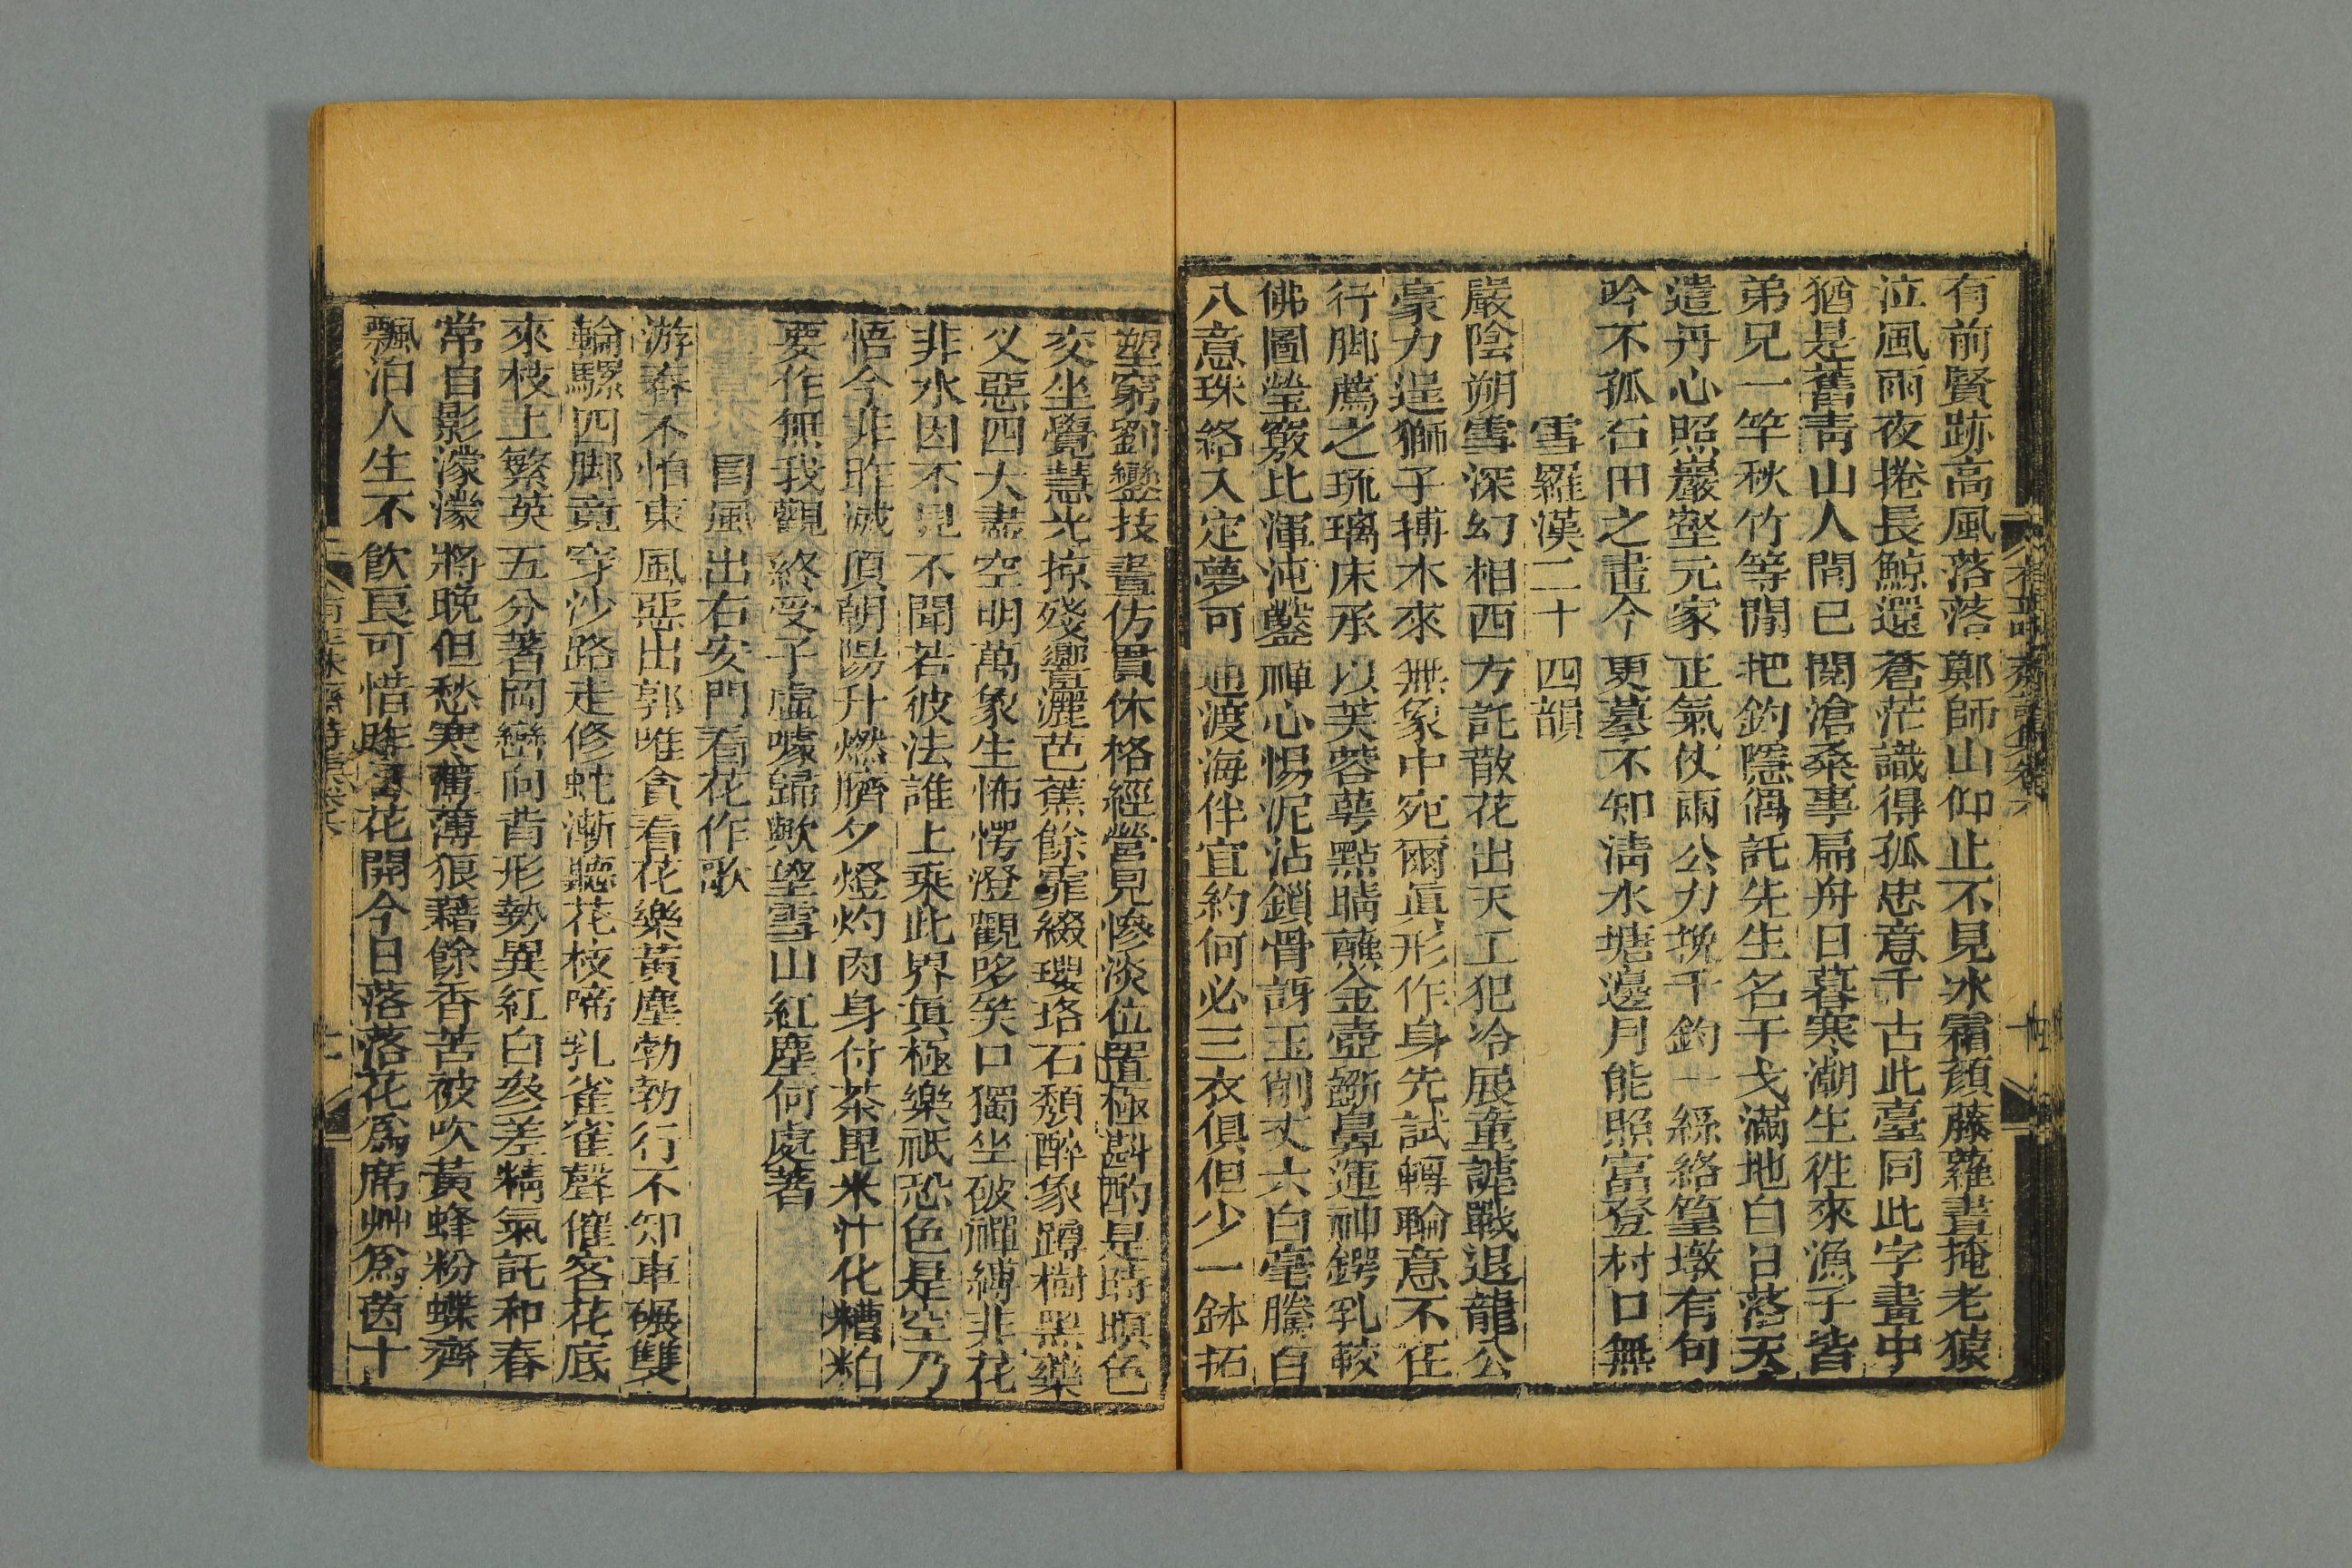 有前賢跡高風落落鄭師山仰止不見冰霜顏藤蘿晝掩老猿
泣風雨夜捲長鯨還蒼茫識得孤忠意千古此臺同此字畫中
猶是舊靑山人閒已閱滄桑事扁舟日暮寒潮生徃來漁子皆
弟兄一竿秋竹等閒把釣隱偶託先生名干戈滿地白日落天
遣丹心照巖壑元家正氣仗兩公力挽千鈞一絲絡篁墩有句
吟不孤石田之畫今更摹不知淸水塘邊月能照富登村口無
雪羅漢二十四韻
嚴陰朔雪深幻相西方託散花出天工犯冷展童謔戰退龍公
豪力逞獅子搏木來無象中宛爾眞形作身先試轉輪意不在
行脚薦之琉璃床承以芙蓉萼點睛蘸金壺斵鼻運神鍔乳較
佛圖瑩竅比渾沌鑿禪心惕泥沾鎖骨訝玉削丈六白毫騰百
八意珠絡入定夢可通渡海伴宜約何必三衣俱但少一鉢拓
塑窮劉鑾技畫仿貫休格經營見慘淡位置極斟酌是時暝色
交坐覺慧光掠殘響灑芭蕉餘霏綴瓔珞石頹醉象蹲樹黑藥
义惡四大盡空明萬象生怖愕澄觀哆笑口獨坐破禪縛非花
非水因不見不聞若彼法誰上乘此界眞極樂祇恐色是空乃
悟今非昨滅頂朝陽升燃臍夕燈灼肉身付茶毘米汁化糟粕
要作無我觀終受子虛噱歸歟望雪山紅塵何處著
冒風出右安門看花作歌
游春不怕東風惡出郭唯貪看花樂黃塵勃勃行不知車碾雙
輪騾四脚竟穿沙路走修蛇漸聽花枝啼乳雀雀聲催客花底
來枝上繁英五分著岡巒向背形勢異紅白參差精氣託和春
常自影濛濛將晚但愁寒薄薄狼藉餘香苦被吹黃蜂粉蝶齊
飄泊人生不飲良可惜昨日花開今日落落花爲席艸爲茵十